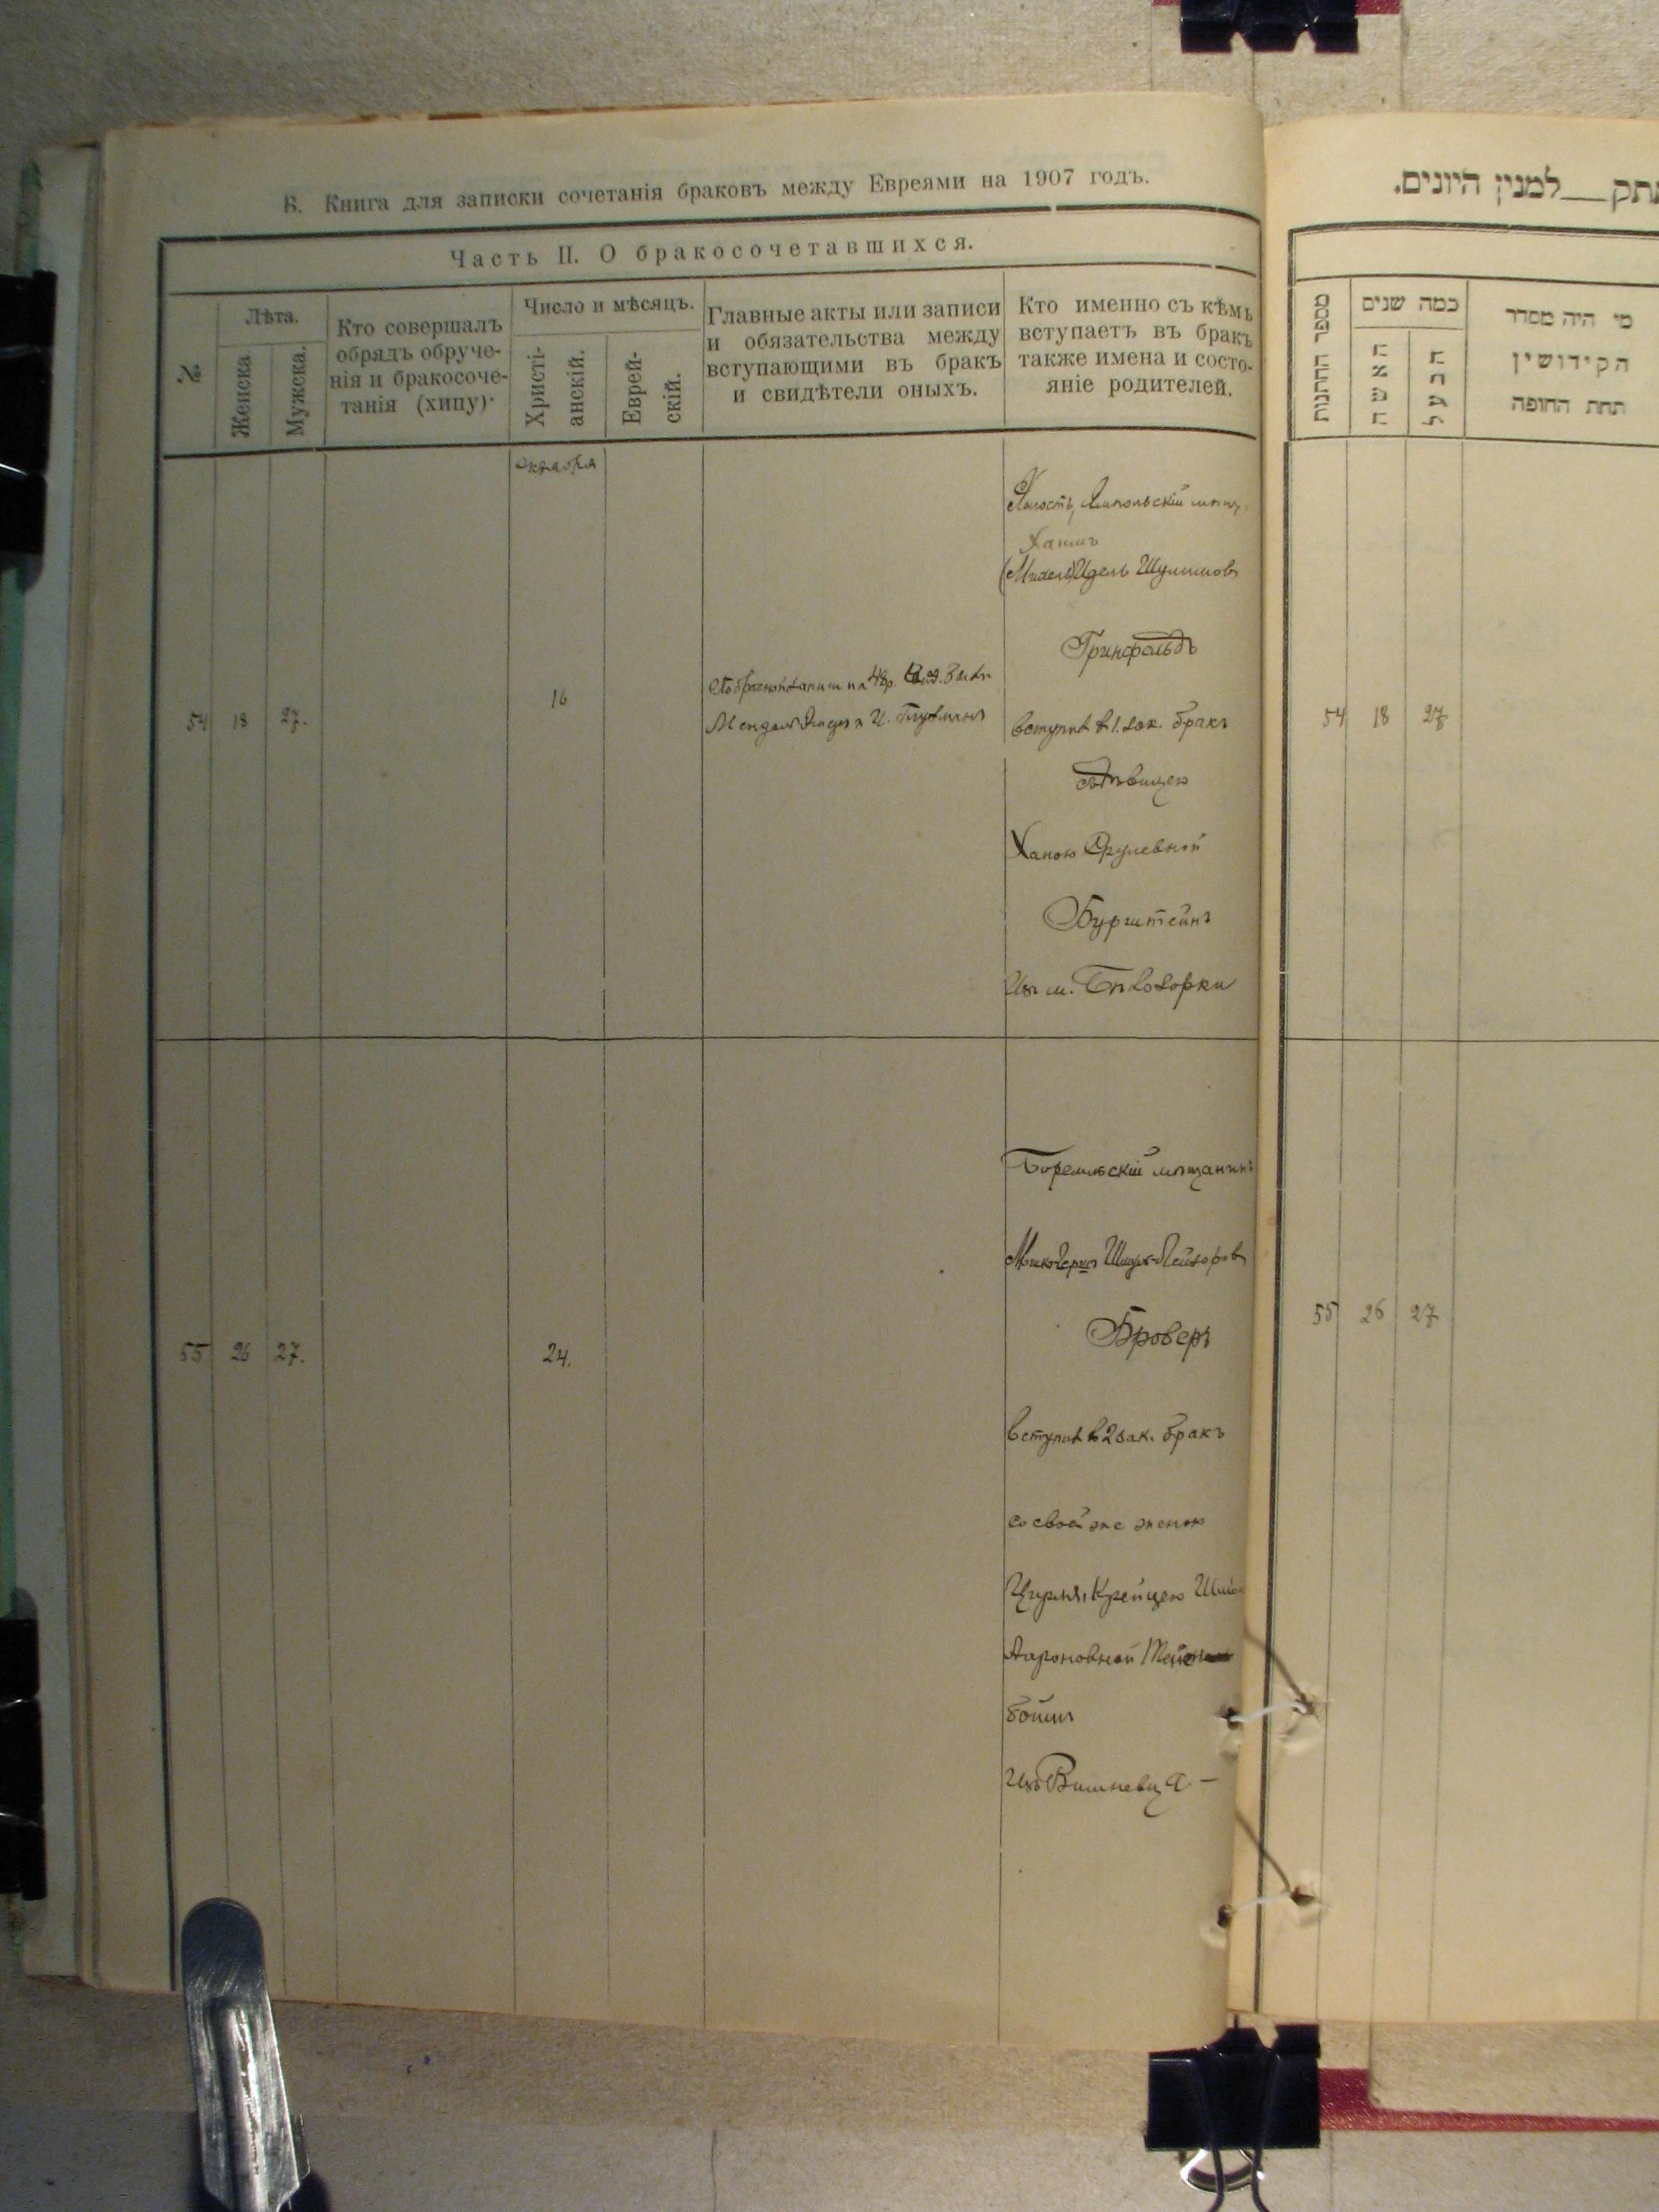 Б. Книга для записки сочетанія браковъ между Евреями на 1907 годъ.
Часть II. О бракосочетавшихся.
№
Лѣта.
Женска
Мужска.
Кто совершалъ
обрядъ обруче-
нія и бракосоче-
танія (хипу)·
Число и мѣсяцъ.
Христі-
анскій.
Еврей-
скій.
Главные акты или записи
и обязательства между
вступающими въ бракъ
и свидѣтели оныхъ.
Кто именно съ кѣмъ
вступаетъ въ бракъ
также имена и состо-
яніе родителей.
Октября
54 18 27.
16
на 48р.
Холостъ, Ямпольскій мѣщ.
Хаимъ
Идель Шулимовъ
Гринфельдъ
вступилъ в 1. зак. бракъ
съ дѣвицею
Ханою Срулевной
Бурштейнъ
Изъ м. Бѣлозорки
55 26 27.
24.
Боремльскій мѣщанинъ
Лейзоровъ
Броверъ
вступилъ в 2 зак. бракъ
со своей же женою
Крейцею
Аароновной
боймъ
Изъ Вишневца. –
למנין היונים.
מספר החתונות
כמה שנים
האשה
הבעל
מי היה מסדר
הקידושין
תחת החופה
54 18 27
55 26 27